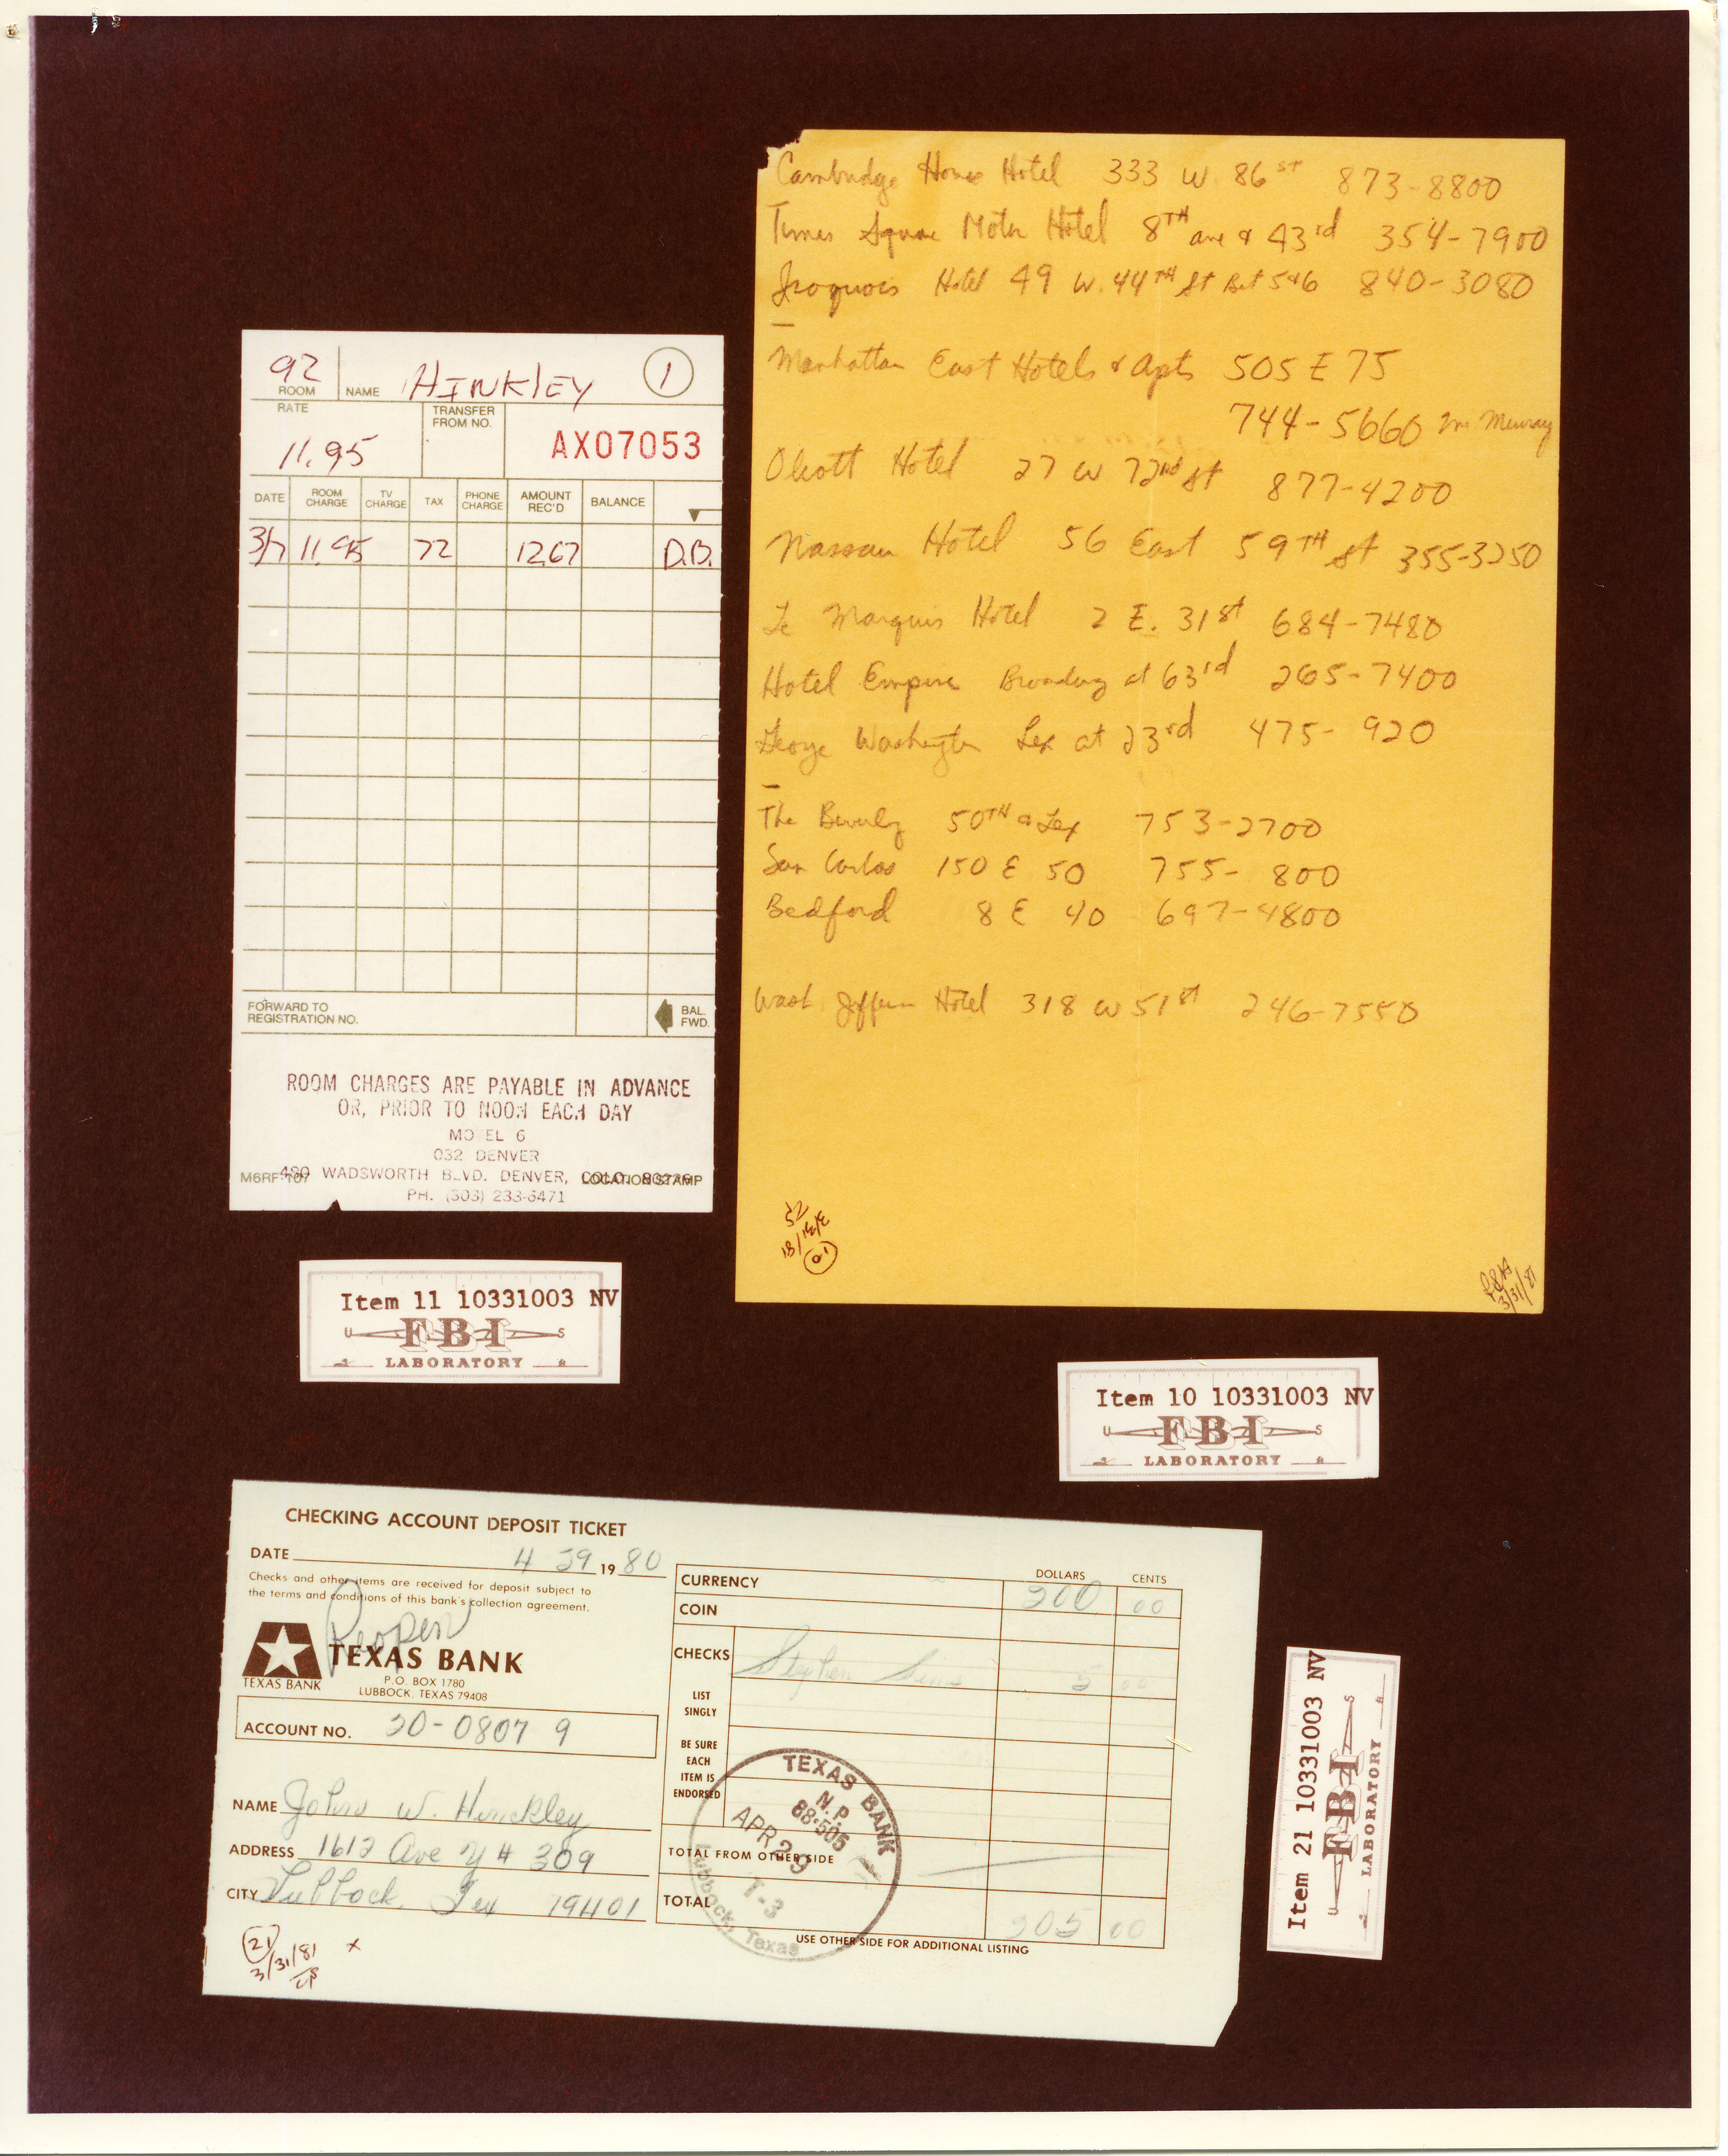 Cambridge House Hotel 333 W 86st 873-8800
Times Square Motor Hotel 8TH ave & 43rd 354-7900
Iroquois Hotel 49 W. 44TH St Bet 5&6 840-3080
Manhattan East Hotels & Apts 505 E 75
744-5660 Murray
Olcott Hotel 27 W 72nd St 877-4200
Nassau Hotel 56 East 59TH St 355-3250
Le Marquis Hotel 2 E. 31st 684-7480
Hotel Empire Broadway at 63rd 265-7400
George Washington Lex at 23rd 475-920
The Beverly 50TH & Lex 753-2700
San Carlos 150 E 50 755-800
Bedford 8 E 40 697-4800
Wash Jefferson Hotel 318 W 51st 246-7550
3/31/81
10
3/31/81
92
ROOM
NAME HINKLEY 1
RATE
11.95
TRANSFER
FROM NO.
AX07053
DATE ROOM CHARGE TV CHARGE TAX PHONE CHARGE AMOUNT REC'D BALANCE
3/7 11.95 72 1267 D.B.
FORWARD TO
REGISTRATION NO.
BAL.
FWD.
ROOM CHARGES ARE PAYABLE IN ADVANCE
OR, PRIOR TO NOON EACH DAY
MO EL 6
032 DENVER
480 WADSWORTH BLVD. DENVER, COLO.
M6RF-107 LOCATION STAMP
PH. (303) 233-6471
Item 11 10331003 NV
U S
FBI
LABORATORY
Item 10 10331003 NV
U S
FBI
LABORATORY
CHECKING ACCOUNT DEPOSIT TICKET
DATE 4 29 1980
Checks and other items are received for deposit subject to
the terms and conditions of this bank's collection agreement.
Reopen
TEXAS BANK
TEXAS BANK
P.O. BOX 1780
LUBBOCK, TEXAS 79408
ACCOUNT NO. 20-0807 9
NAME John W. Hinckley
ADDRESS 1612 Ave Y # 309
CITY Lubbock, Tex 79401
21
3/31/81 x
DOLLARS CENTS
CURRENCY 200 00
COIN
CHECKS Stephen Sims 5 00
LIST
SINGLY
BE SURE
EACH
ITEM IS
ENDORSED
TOTAL FROM OTHER SIDE
TOTAL 205 00
USE OTHER SIDE FOR ADDITIONAL LISTING
TEXAS BANK
N.P.
88-505
APR 29
T-3
Lubbock, Texas
Item 21 10331003 NV
U S
FBI
LABORATORY